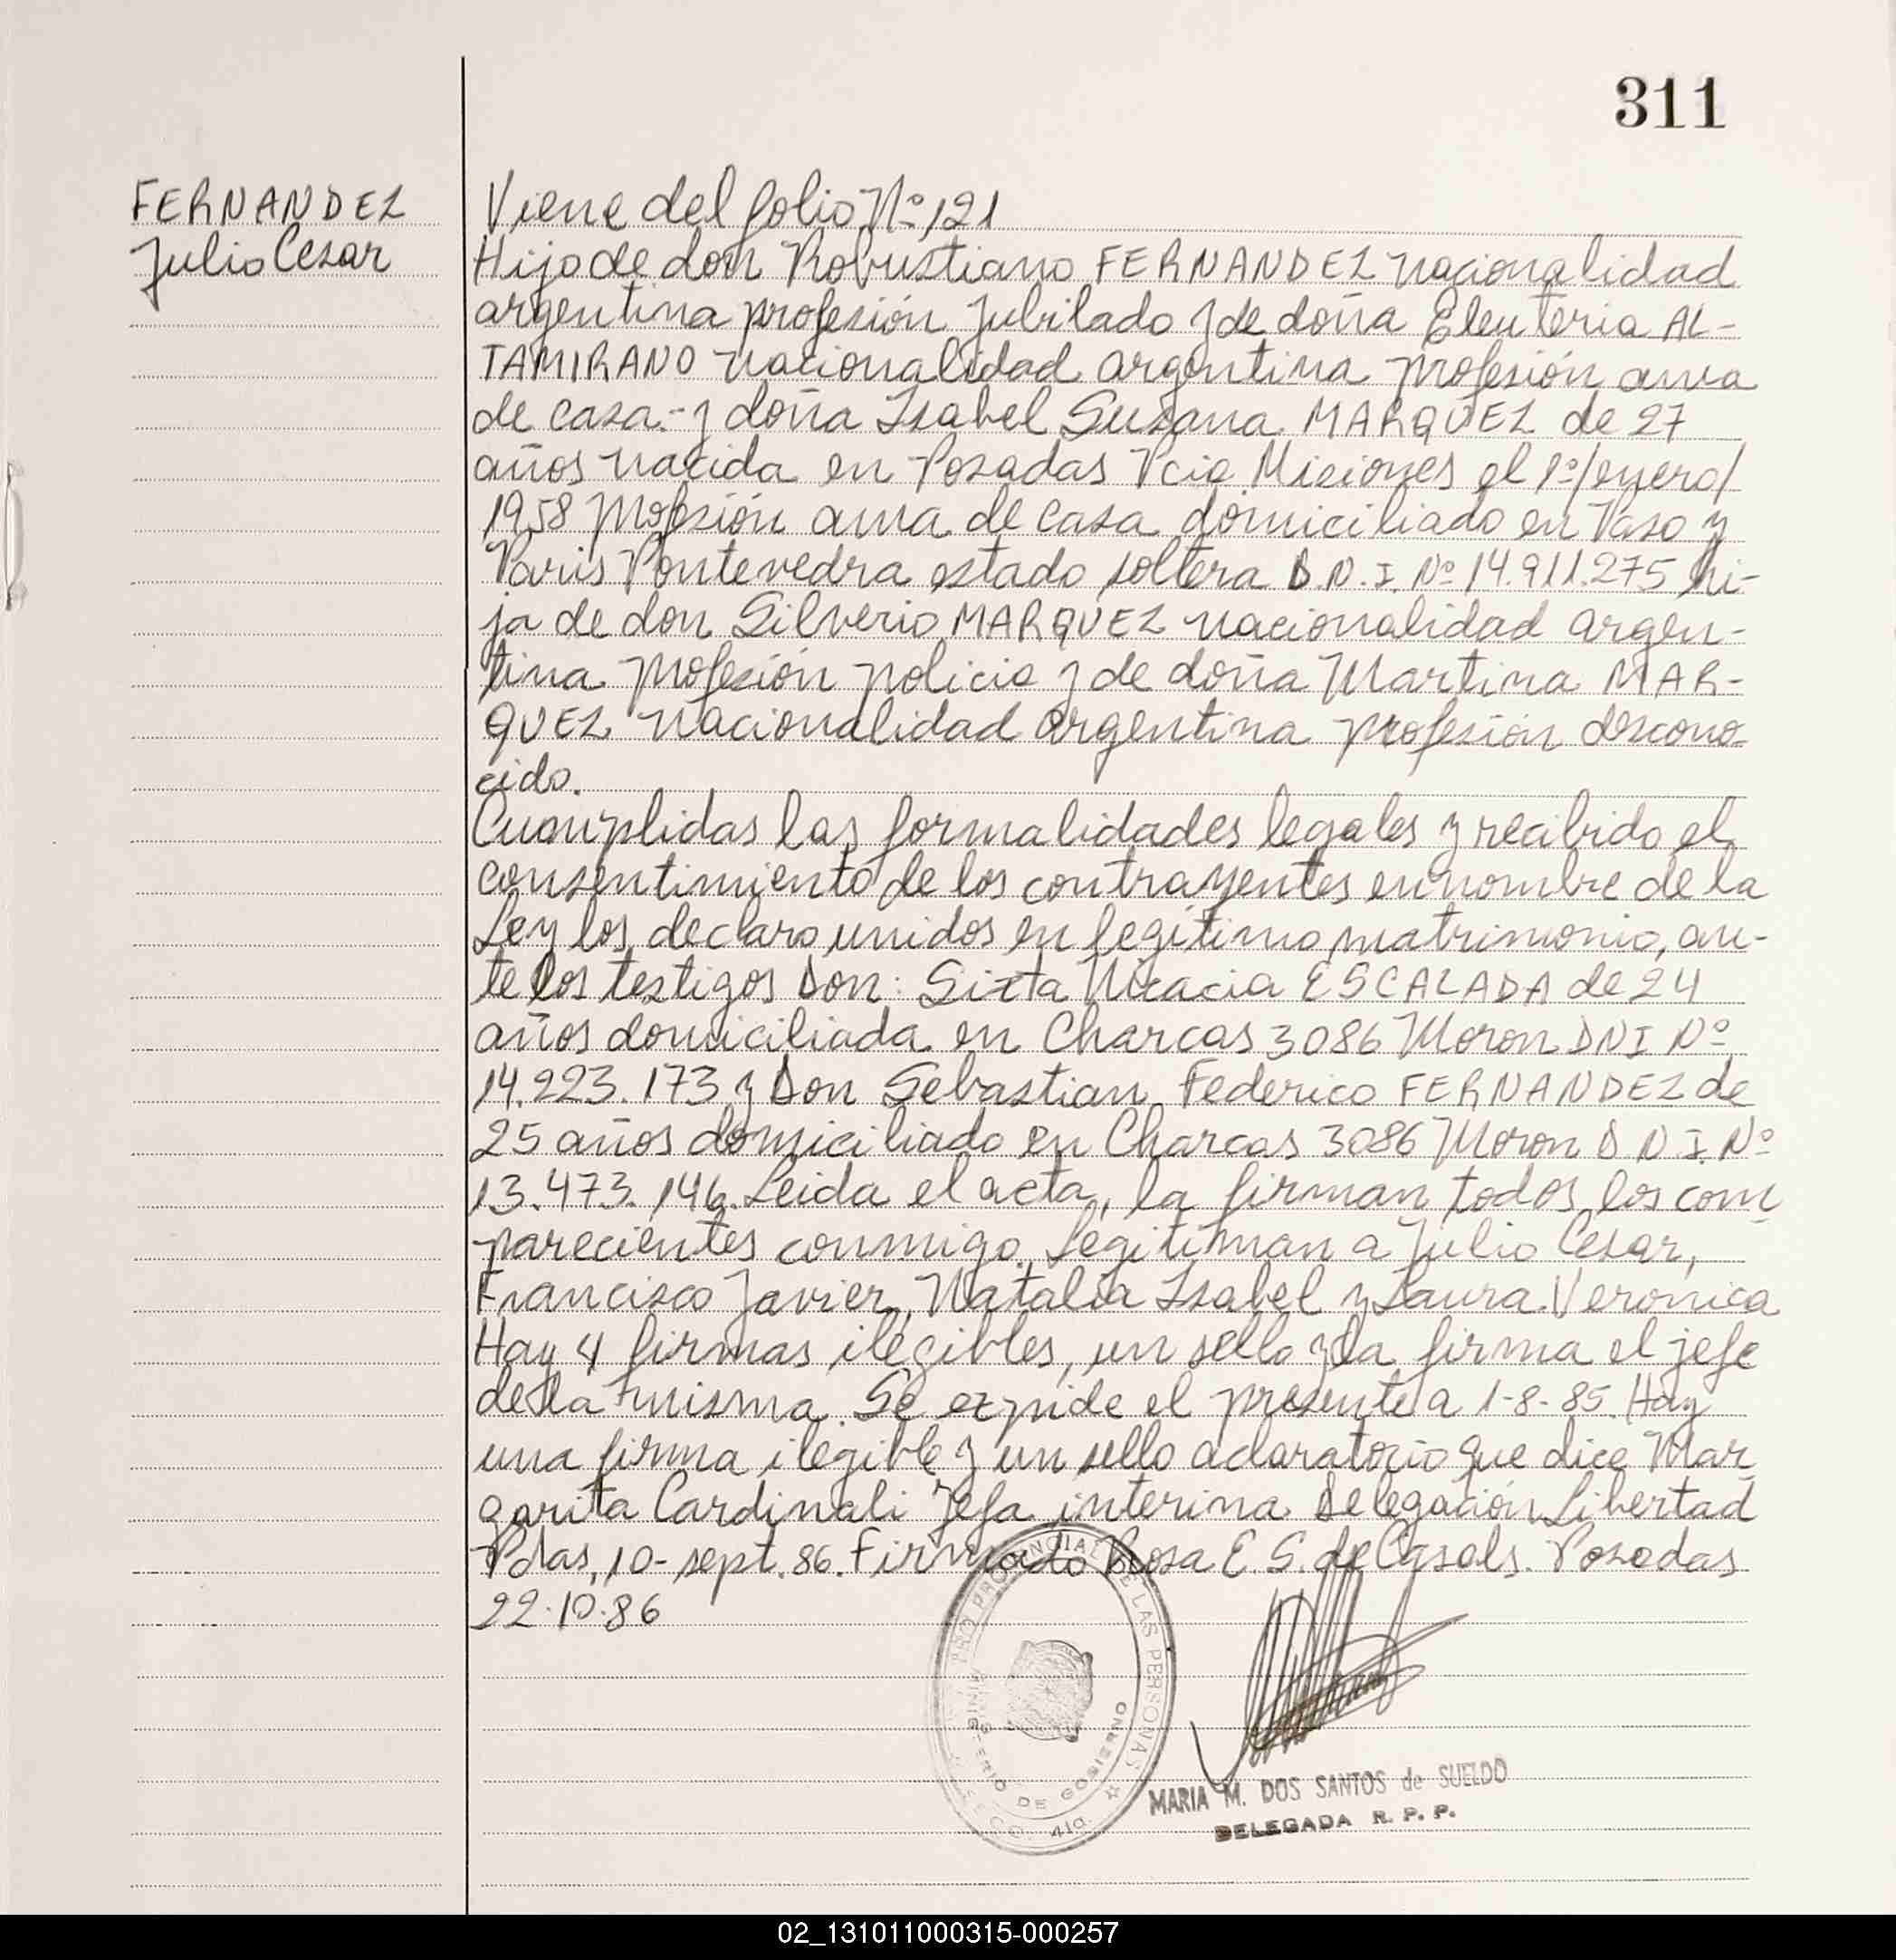 311
FERNANDEZ
Julio Cesar
Viene del folio Nº 121
Hijo de don Robustiano FERNANDEZ nacionalidad
argentina profesión Jubilado y de doña Eleuteria AL-
TAMIRANO nacionalidad argentina profesión ama
de casa.- y doña Isabel Susana MARQUEZ de 27
años nacida en Posadas Pcia Misiones el 1º/enero/
1958 profesión ama de casa domiciliado en Vaso y
Paris Pontevedra estado soltera D.N.I. Nº 14.911.275 hi-
ja de don Silverio MARQUEZ nacionalidad argen-
tina profesión policia y de doña Martina MAR-
QUEZ nacionalidad argentina profesión descono-
cido.
Cumplidas las formalidades legales y recibido el
consentimiento de los contrayentes en nombre de la
Ley los declaro unidos en legítimo matrimonio, an-
te los testigos Don: Sixta Nicacia ESCALADA de 24
años domiciliada en Charcas 3086 Moron DNI Nº
14.223.173 y Don Sebastian Federico FERNANDEZ de
25 años domiciliado en Charcas 3086 Moron D N I. Nº
13.473.146. Leida el acta, la firman todos los com
parecientes conmigo. Legitiman a Julio Cesar,
Francisco Javier, Natalia Isabel y Laura Veronica
Hay 4 firmas ilegibles, un sello y la firma el jefe
de la misma. Se expide el presente a 1-8-85. Hay
una firma ilegible y un sello aclaratorio que dice Mar
garita Cardinali Jefa interina Delegación Libertad
Pdas, 10-sept.86. Firmado Rosa E. S. de Casals. Posadas
22.10.86
PROVINCIAL DE LAS PERSONAS
MINISTERIO DE GOBIERNO
410
MARIA M. DOS SANTOS de SUELDO
DELEGADA R. P. P.
02_131011000315-000257